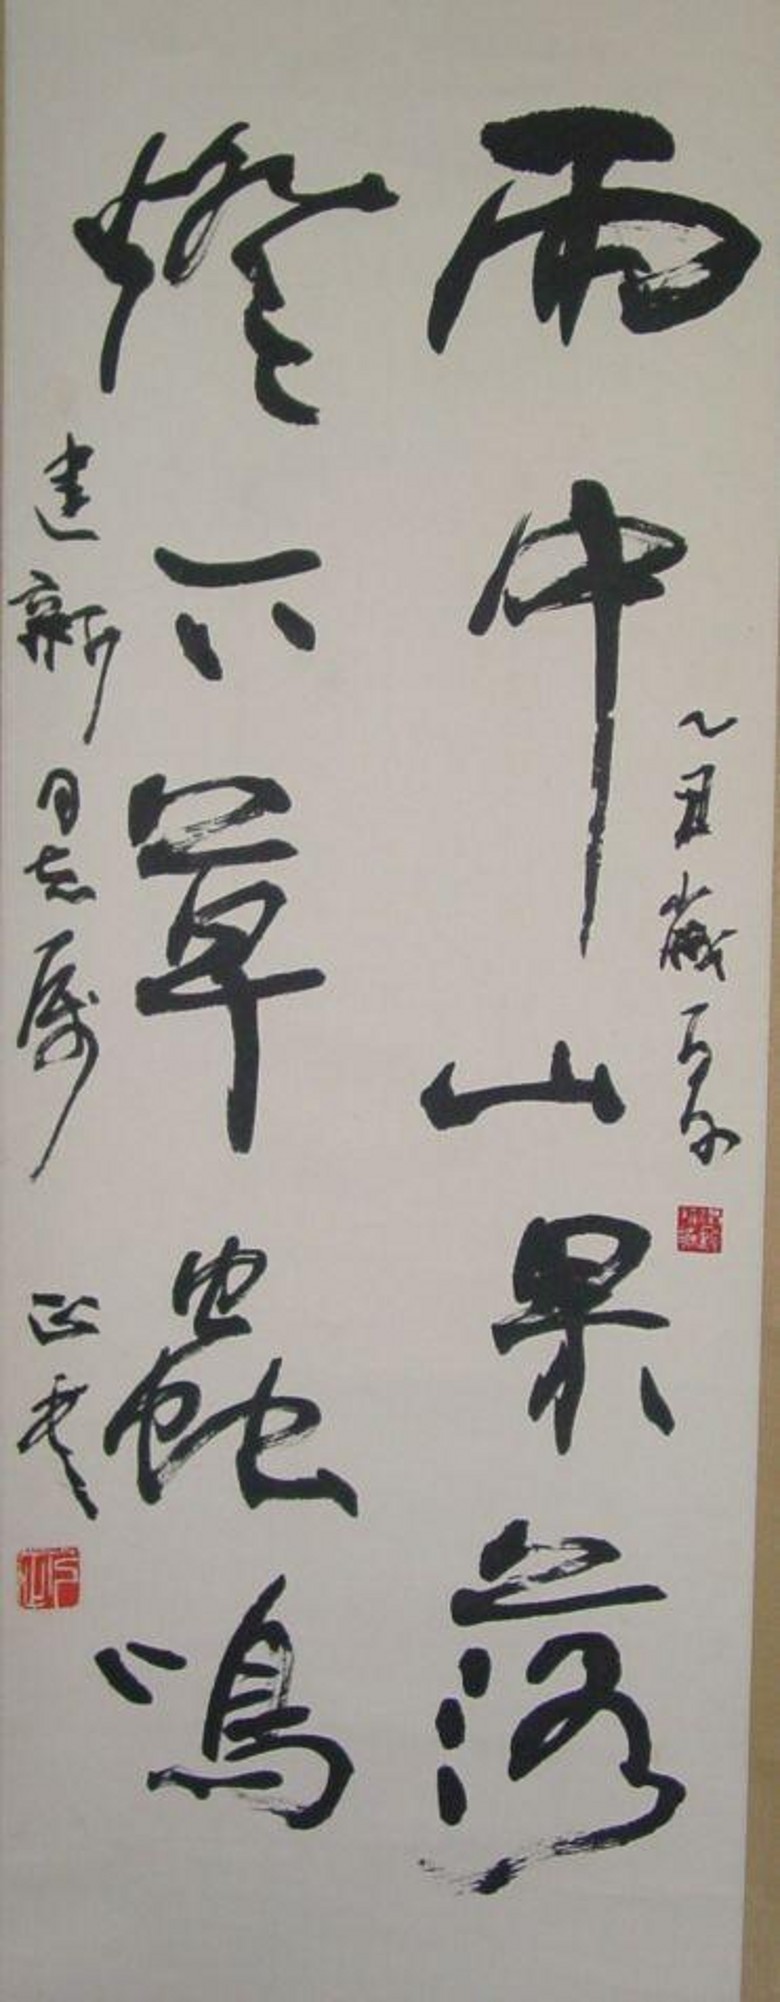 乙丑歲夏
雨中山果落
燈下草蟲鳴
建新同志屬